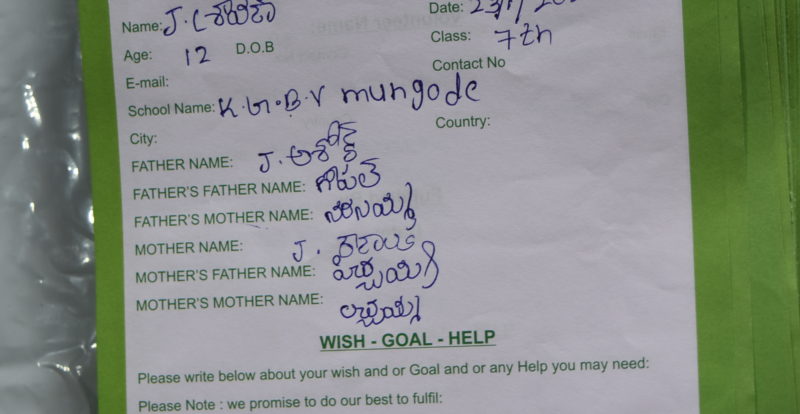 Name: J.
Date: 23/1/
Age: 12 D.O.B
Class: 7th
E-mail:
Contact No
School Name: K.G.B.V mungode
City:
Country:
FATHER NAME: J. అశోక్
FATHER'S FATHER NAME: గోపాల్
FATHER'S MOTHER NAME: నరసమ్మ
MOTHER NAME: J.
MOTHER'S FATHER NAME:
MOTHER'S MOTHER NAME: లచ్చమ్మ
WISH - GOAL - HELP
Please write below about your wish and or Goal and or any Help you may need:
Please Note : we promise to do our best to fulfil: